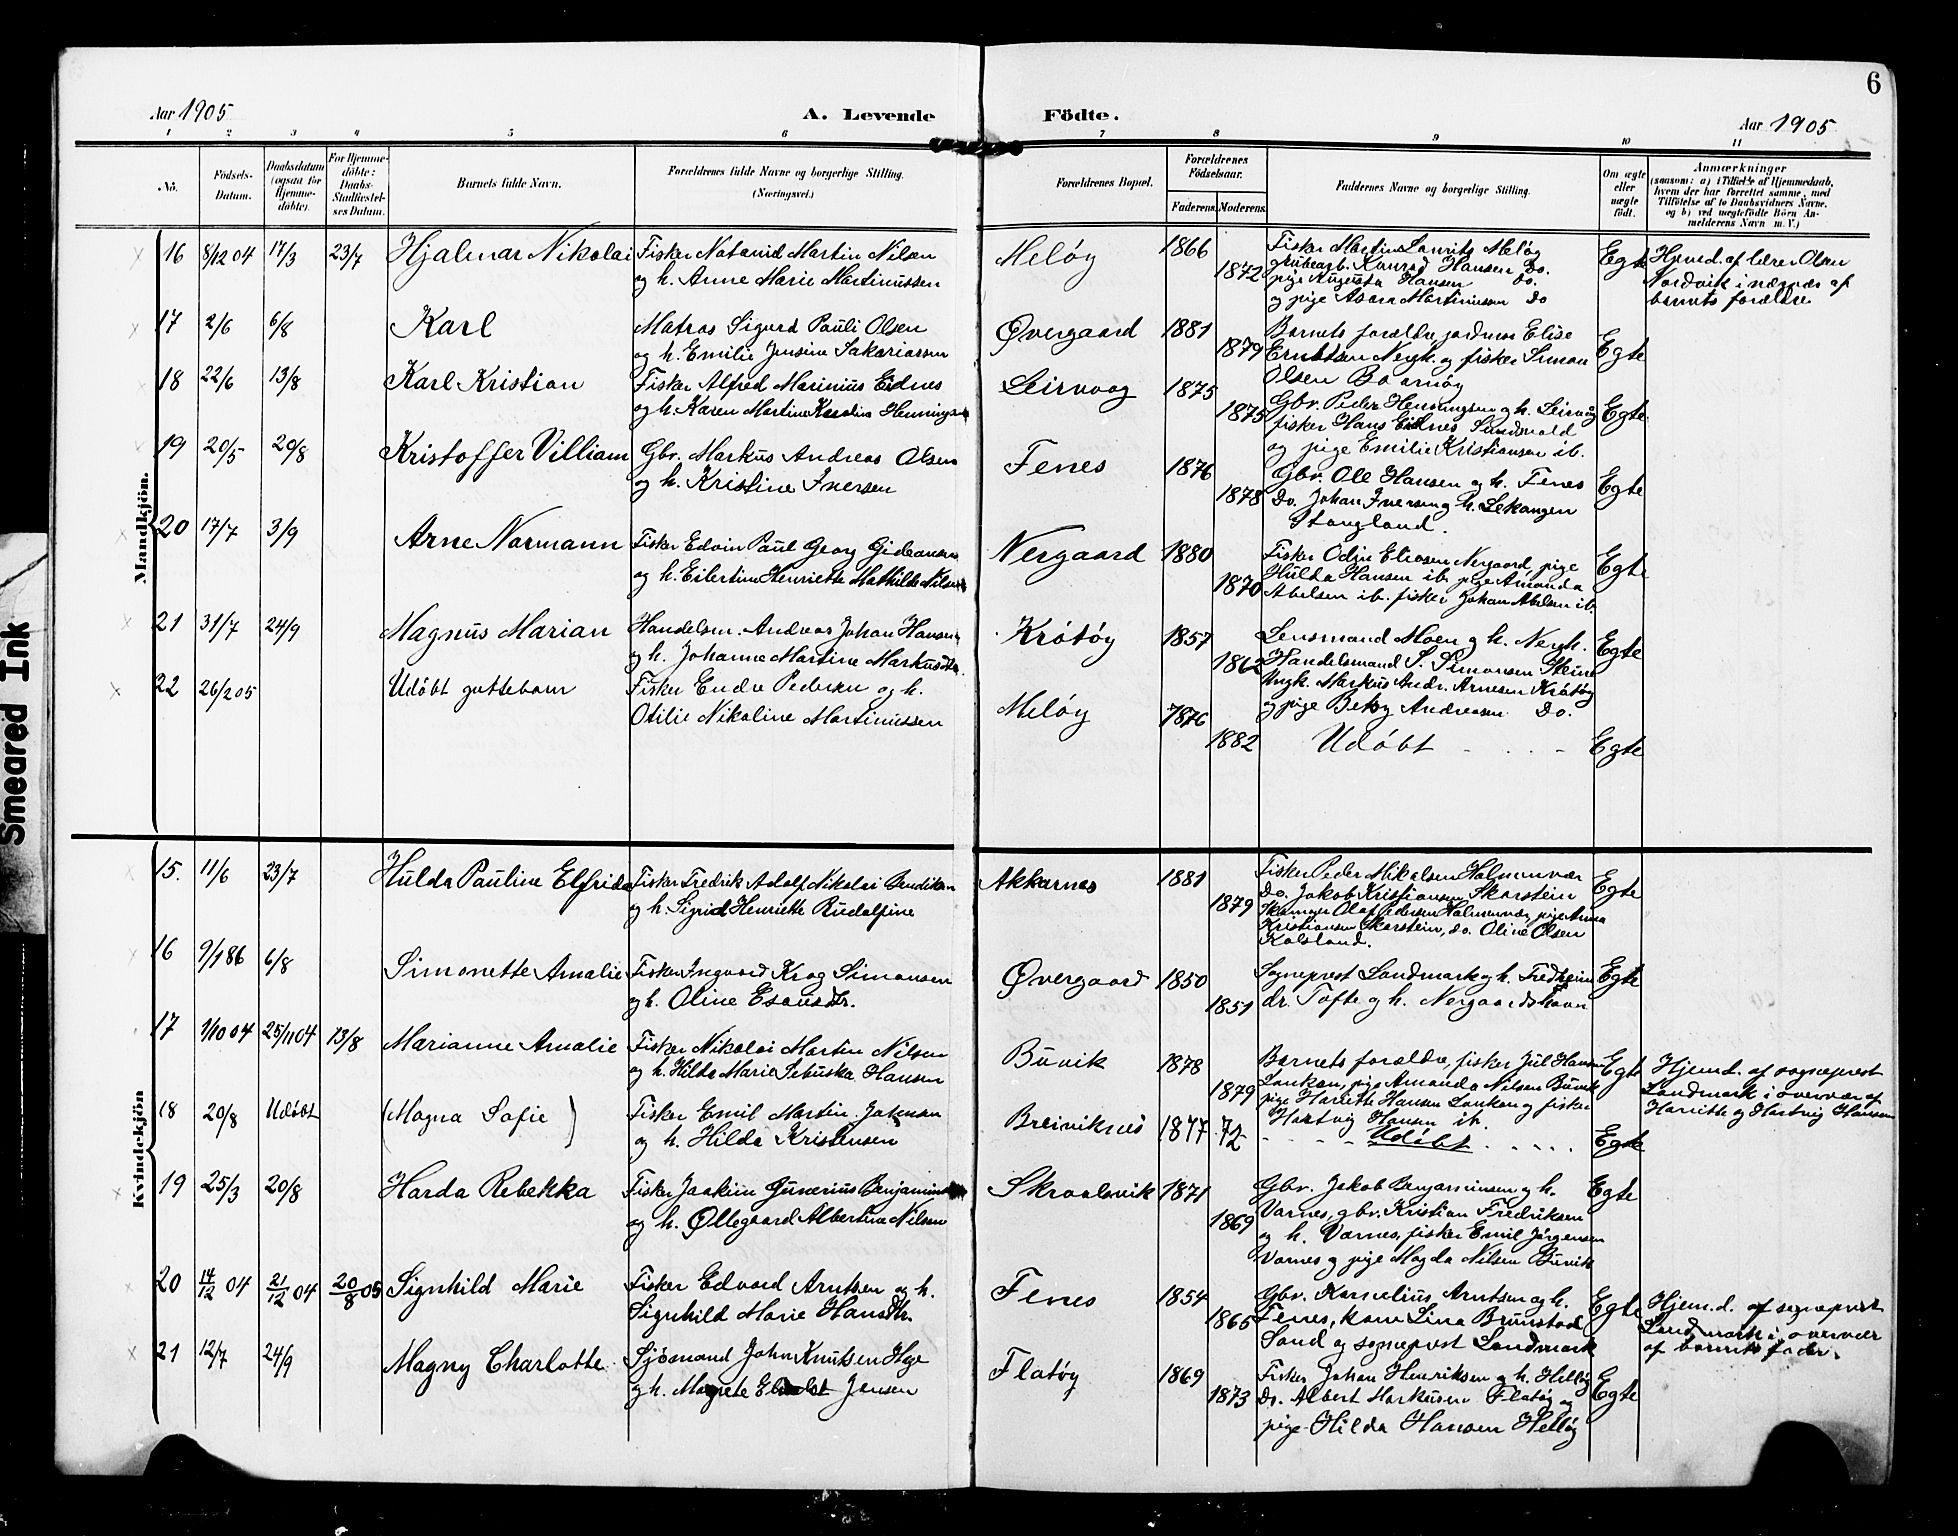 6
Aar 1905
A. Levende
Födte.
Aar 1905
1 2 3 4 5 6 7 8 9 10 11
No.
Födsels-Datum.
Daabsdatum (ogsaa for Hjemme-döbte).
For Hjemme-döbte: Daabs-Stadfæstel-ses Datum.
Barnets fulde Navn.
Forældrenes fulde Navne og borgerlige Stilling.
(Næringsvei.)
Forældrenes Bopæl.
Forældrenes Födselsaar.
Faderens. Moderens.
Faddernes Navne og borgerlige Stilling.
Om ægte eller uægte födt.
Anmærkninger
(saasom: a) i Tilfælde af Hjemmedaab,
hvem der har forrettet samme, med
Tilföielse af to Daabsvidners Navne,
og b) ved uægtefödte Börn An-
melderens Navn m. V.)
Mandkjön.
16 8/12 04 17/3 23/7 Hjalmar Nikolai Fisker Natanid Martin Nilsen
og h. Anne Marie Martinussen
Meløy 1866 1872
Fisker Martin Laurits Meløy
Konrad Hansen Do.
pige Augusta Hansen Do.
og pige Asora Martinussen Do
Egte
Hjemd. af lærer Olsen
Nordvik i nærvær af
barnets forældre
17 2/6 6/8 Karl Matros Sigurd Pauli Olsen
og h. Emilie Jensine Sakariassen
Øvergaard 1881 1879
Barnets forældre, jordmor Elise
Erntsen Nergh. og fisker Simon
Olsen Bolmøy
Egte
18 22/6 13/8 Karl Kristian Fisker Alfred Marinius Eidnes
og h. Karen Martine Karolin Hennings
Leirvaag 1875 1875
Gbr. Peder Henningsen og h. Leirvåg
fisker Hans Eidnes Sundvold
og pige Emilie Kristiansen ib.
Egte
19 20/5 20/8 Kristoffer Villiam Gbr. Markus Andreas Olsen
og h. Kristine Iversen
Fenes 1876 1878
Gbr. Ole Hansen og h. Fenes
Do. Johan Iversen og h. Lekangen
Stangland.
Egte
20 17/7 3/9 Arne Normann Fisker Edvin Paul Georg Gideonsen
og h. Eilertine Henriette Mathilde Nilsen
Nergaard 1880 1870
Fisker Odin Eliesen Nergaard, pige
Hulda Hansen ib. pige Amanda
Abelsen ib. fisker Johan Abelsen ib.
Egte
21 31/7 24/9 Magnus Marian Handelsm. Andreas Johan Hansen
og h. Johanne Martine Markusdtr.
Kråtøy 1857 1862
Lensmand Moen og h. Nergh.
Handelsmand S. Simonsen Stene
Ungk. Markus Andr. Arnesen Kråtøy
og pige Betsy Andreasen Do.
Egte
22 26/2 05 Udøbt guttebarn Fisker Endre Pedersen og h.
Otilie Nikoline Martinussen
Meløy 1876 1882
Udøbt
Egte
Kvindekjön
15. 11/6 23/7 Hulda Pauline Elfride Fisker Fredrik Adolf Nikolai Bendiksen
og h. Sigrid Henriette Rudolfine
Akkarnes 1881 1879
Fisker Peder Mikalsen Holmenvær
Do. Jakob Kristiansen Skarstein
Olaf Pedersen Holmenvær, pige Anna
Kristiansen Skarstein, do. Oline Olsen
Kalsland.
Egte
16 9/1 86 6/8 Simonette Amalie Fisker Ingvard Krog Simonsen
og h. Oline Esausdtr.
Øvergaard 1850 1851
Sogneprest Landmark og h. Fredheim
dr. Tofte og h. Nergaardshavn
Egte
17 1/10 04 25/11 04 13/8 Marianne Amalie Fisker Nikolai Martin Nilsen
og h. Hilda Marie Sebuska Hansen
Buvik 1878 1879
Barnets forældre, fisker Jul Hansen
Lankan, pige Amanda Nilsen Buvik
pige Harriette Hansen Lankan og fisker
Hartvig Hansen ib.
Egte
Hjemd. af sogneprest
Landmark i overvær af
Harriette og Hartvig Hansen
18 20/8 Udøbt (Magna Sofie) Fisker Emil Martin Johnsen
og h. Hilda Kristensen
Breiviknes 1877 72
Udøbt
Egte
19 25/3 20/8 Harda Rebekka Fisker Joakim Gunerius Benjaminsen
og h. Øllegaard Albertine Nilsen
Skraalsvik 1871 1869
Gbr. Jakob Benjaminsen og h.
Varnes, gbr. Kristian Fredriksen
og h. Varnes, fisker Emil Jørgensen
Varnes og pige Magda Nilsen Buvik
Egte
20 14/12 04 21/12 04 20/8 05 Signhild Marie Fisker Edvard Arntsen og h.
Signhild Marie Hansdtr.
Fenes 1854 1865
Gbr. Kornelius Arntsen og h.
Fenes, kone Lina Brunstad
Sand og sogneprest Landmark
Egte
Hjem.d. af sogneprest
Landmark i overvær
af barnets fader.
21 12/7 24/9 Magny Charlotte Sjømand John Knutsen Hge
og h. Magrete Jensen
Flatøy 1869 1873
Fisker Johan Henriksen og h. Helløy
Do. Albert Markussen Flatøy og
pige Hilda Hansen Helløy
Egte
Smeared Ink